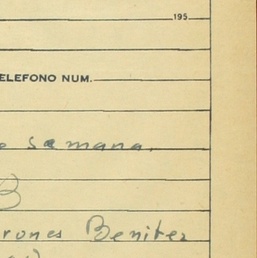 195
ELEFONO NUM.
samana.
B
rones Benitez